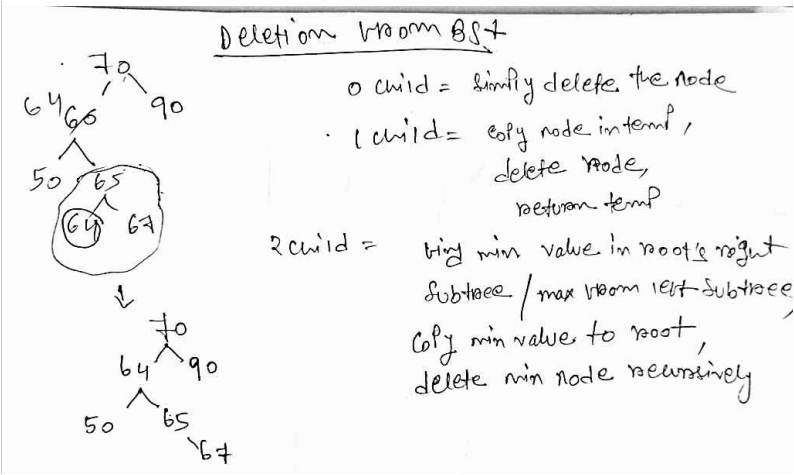 Deletion from BST
70
64 60 90
50 65
64 67
70
64 90
50 65
67
0 child = simply delete the node
1 child = copy node in temp,
delete node,
return temp
2 child = find min value in root's right
subtree / max from left subtree,
copy min value to root,
delete min node recursively